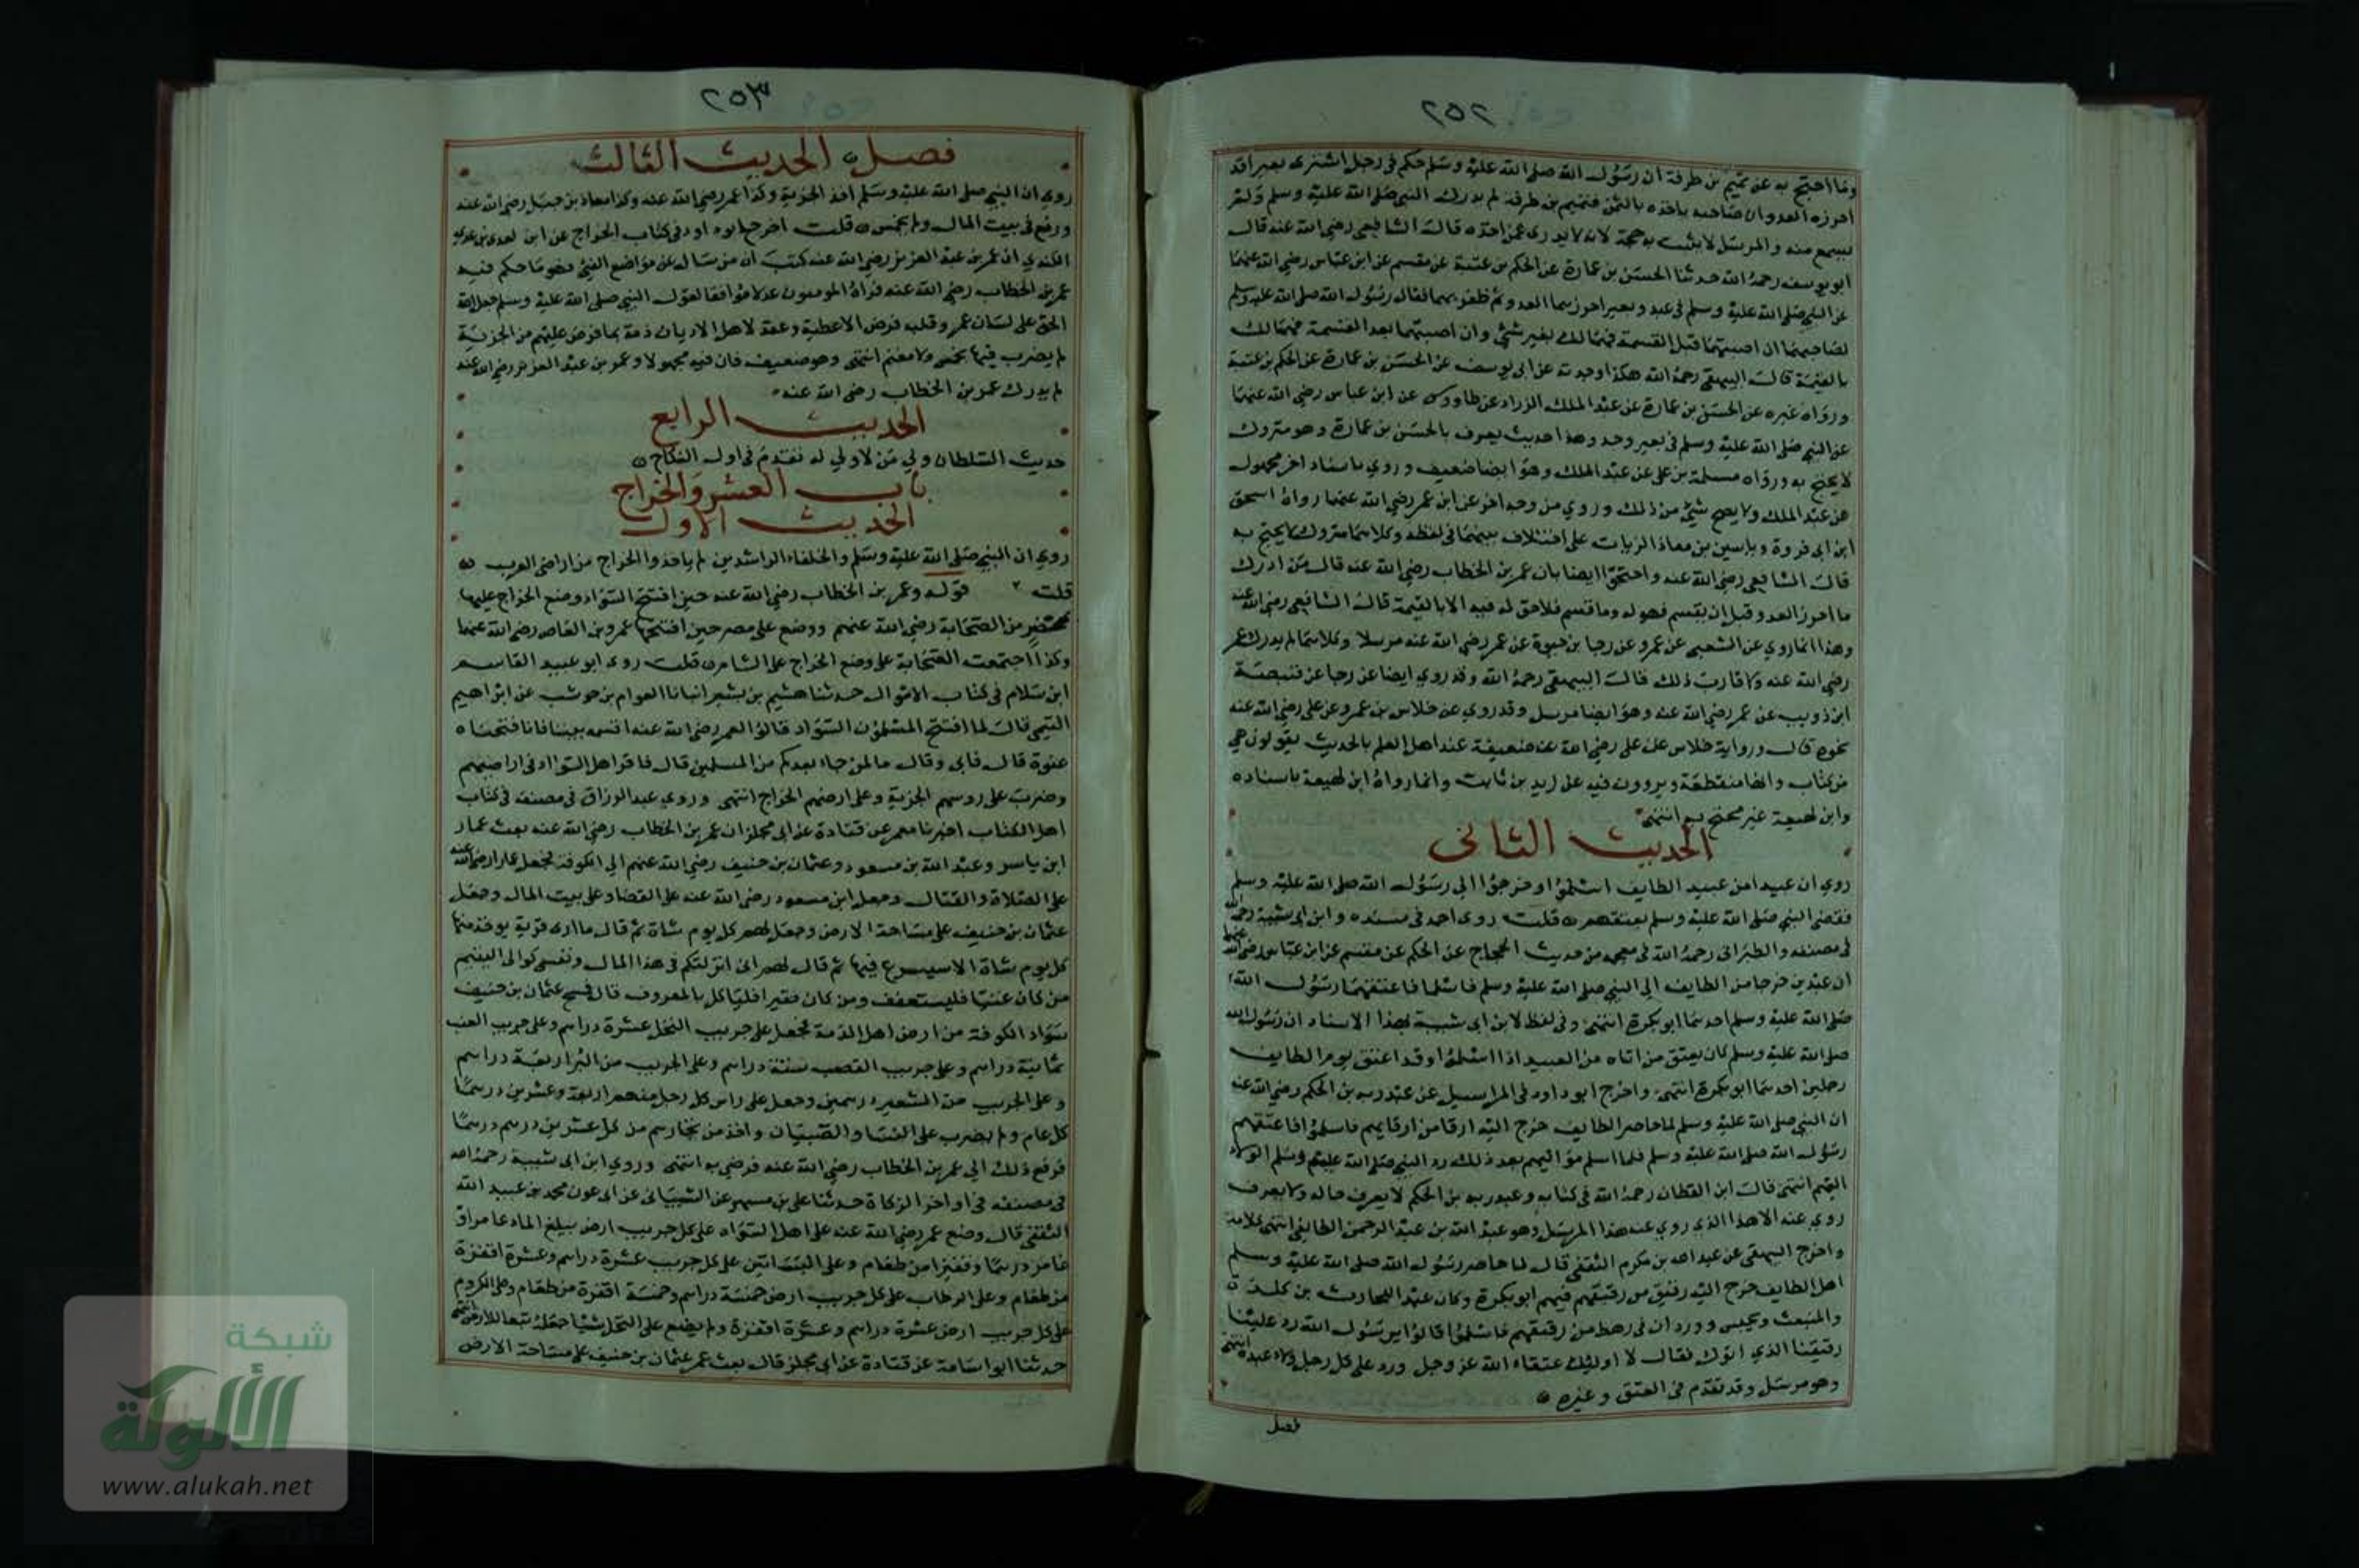 ٢٥٢
وما احتج به عن تميم بن طرفة ان رسول الله صلى الله عليه وسلم حكم في رجل اشترى بعيرا قد
احرزه العدو ان صاحبه ياخذه بالثمن فتميم بن طرفة لم يدرك النبي صلى الله عليه وسلم ولم
يسمع منه والمرسل لا يثبت به حجة لانه لا يدرى عمن اخذه قال الشافعي رضي الله عنه قال
ابو يوسف رحمه الله حدثنا الحسن بن عمارة عن الحكم بن عتيبة عن مقسم عن ابن عباس رضي الله عنهما
عن النبي صلى الله عليه وسلم في عبد وبعير احرزهما العدو ثم ظفر بهما فقال رسول الله صلى الله عليه وسلم
لصاحبهما ان اصبتهما قبل القسمة فهما لك بغير شئ وان اصبتهما بعد القسمة فهما لك
بالقيمة قال البيهقي رحمه الله هكذا وجدته عن ابي يوسف عن الحسن بن عمارة عن الحكم بن عتيبة
ورواه غيره عن الحسن بن عمارة عن عبد الملك الزراد عن طاووس عن ابن عباس رضي الله عنهما
عن النبي صلى الله عليه وسلم في بعير وحد وهذا حديث يعرف بالحسن بن عمارة وهو متروك
لا يحتج به ورواه مسلمة بن علي عن عبد الملك وهو ايضا ضعيف وروي باسناد اخر مجهول
عن عبد الملك ولا يصح شئ من ذلك وروي من وجه اخر عن ابن عمر رضي الله عنهما رواه اسحق
ابن ابي فروة وياسين بن معاذ الزيات على اختلاف بينهما في لفظه وكلاهما متروك لا يحتج به
قال الشافعي رضي الله عنه واحتجوا ايضا بان عمر بن الخطاب رضي الله عنه قال من ادرك
ما احرز العدو قبل ان يقسم فهو له وما قسم فلا حق له فيه الا بالقيمة قال الشافعي رضي الله عنه
وهذا انما روي عن الشعبي عن عمر وعن رجا بن حيوة عن عمر رضي الله عنه مرسلا وكلاهما لم يدرك عمر
رضي الله عنه ولا قارب ذلك قال البيهقي رحمه الله وقد روي ايضا عن رجا عن قبيصة
ابن ذويب عن عمر رضي الله عنه وهو ايضا مرسل وقد روي عن خلاس بن عمرو عن علي رضي الله عنه
نحوه قال ورواية خلاس عن علي رضي الله عنه ضعيفة عند اهل العلم بالحديث يقولون هي
من كتاب وانها منقطعة ويروون فيه عن زيد بن ثابت وانما رواه ابن لهيعة باسناده
وابن لهيعة غير محتج به انتهى
الحديث الثاني
روي ان عبيدا من عبيد الطايف اسلموا وخرجوا الى رسول الله صلى الله عليه وسلم
فقضى النبي صلى الله عليه وسلم بعتقهم قلت روى احمد في مسنده وابن ابي شيبة رحمه الله
في مصنفه والطبراني رحمه الله في معجمه من حديث الحجاج عن الحكم عن مقسم عن ابن عباس رضي الله عنهما
ان عبدين خرجا من الطايف الى النبي صلى الله عليه وسلم فاسلما فاعتقهما رسول الله
صلى الله عليه وسلم احدهما ابو بكرة انتهى وفي لفظ لابن ابي شيبة بهذا الاسناد ان رسول الله
صلى الله عليه وسلم كان يعتق من اتاه من العبيد اذا اسلموا وقد اعتق يوم الطايف
رجلين احدهما ابو بكرة انتهى واخرج ابو داود في المراسيل عن عبد ربه بن الحكم رضي الله عنه
ان النبي صلى الله عليه وسلم لما حاصر الطايف خرج اليه ارقا من ارقايهم فاسلموا فاعتقهم
رسول الله صلى الله عليه وسلم فلما اسلم مواليهم بعد ذلك رد النبي صلى الله عليه وسلم الولاء
اليهم انتهى قال ابن القطان رحمه الله في كتابه وعبد ربه بن الحكم لا يعرف حاله ولا يعرف
روى عنه الا هذا الذي روي عنه هذا المرسل وهو عبد الله بن عبد الرحمن الطايفي انتهى كلامه
واخرج البيهقي عن عبد الله بن مكرم الثقفي قال لما حاصر رسول الله صلى الله عليه وسلم
اهل الطايف خرج اليه رقيق من رقيقهم فيهم ابو بكرة وكان عبدا للحارث بن كلدة
والمنبعث ويحيس ووردان في رهط من رقيقهم فاسلموا قالوا يا رسول الله رد علينا
رقيقنا الذي اتوك فقال لا اوليك عتقاء الله عز وجل ورد على كل رجل ولاء عبده انتهى
وهو مرسل وقد تقدم في العتق وغيره
فصل
٢٥٣
فصل الحديث الثالث
روي ان النبي صلى الله عليه وسلم اخذ الجزية وكذا عمر رضي الله عنه وكذا معاذ بن جبل رضي الله عنه
ورفع في بيت المال ولم يخمس قلت اخرج ابو داود في كتاب الخراج عن ابن لعدي بن عدي
الكندي ان عمر بن عبد العزيز رضي الله عنه كتب ان من سال عن مواضع الفئ فهو ما حكم فيه
عمر بن الخطاب رضي الله عنه فراه المومنون عدلا موافقا لقول النبي صلى الله عليه وسلم جعل الله
الحق على لسان عمر وقلبه فرض الاعطية وعقد لاهل الاديان ذمة بما فرض عليهم من الجزية
لم يضرب فيها بخمس ولا مغنم انتهى وهو ضعيف فان فيه مجهولا وعمر بن عبد العزيز رضي الله عنه
لم يدرك عمر بن الخطاب رضي الله عنه
الحديث الرابع
حديث السلطان ولي من لا ولي له تقدم في اول النكاح
باب العشر والخراج
الحديث الاول
روي ان النبي صلى الله عليه وسلم والخلفاء الراشدين لم ياخذوا الخراج من اراضي العرب
قلت قوله وعمر بن الخطاب رضي الله عنه حين افتتح السواد وضع الخراج عليها
بمحضر من الصحابة رضي الله عنهم ووضع على مصر حين افتتحها عمرو بن العاص رضي الله عنهما
وكذا اجتمعت الصحابة على وضع الخراج على الشام قلت روى ابو عبيد القاسم
ابن سلام في كتاب الاموال حدثنا هشيم بن بشير انبانا العوام بن حوشب عن ابراهيم
التيمي قال لما افتتح المسلمون السواد قالوا لعمر رضي الله عنه اقسمه بيننا فانا فتحناه
عنوة قال فابى وقال ما لمن جاء بعدكم من المسلمين قال فاقر اهل السواد في اراضيهم
وضرب على روسهم الجزية وعلى ارضهم الخراج انتهى وروى عبد الرزاق في مصنفه في كتاب
اهل الكتاب اخبرنا معمر عن قتادة عن ابي مجلز ان عمر بن الخطاب رضي الله عنه بعث عمار
ابن ياسر وعبد الله بن مسعود وعثمان بن حنيف رضي الله عنهم الى الكوفة فجعل عمارا رضي الله عنه
على الصلاة والقتال وجعل ابن مسعود رضي الله عنه على القضاء وعلى بيت المال وجعل
عثمان بن حنيف على مساحة الارض وجعل لهم كل يوم شاة ثم قال ما ارى قرية يوخذ منها
كل يوم شاة الا سيسرع فيها ثم قال لهم اني انزلتكم في هذا المال ونفسي كوالي اليتيم
من كان غنيا فليستعفف ومن كان فقيرا فلياكل بالمعروف قال فمسح عثمان بن حنيف
سواد الكوفة من ارض اهل الذمة فجعل على جريب النخل عشرة دراهم وعلى جريب العنب
ثمانية دراهم وعلى جريب القصب ستة دراهم وعلى الجريب من البر اربعة دراهم
وعلى الجريب من الشعير درهمين وجعل على راس كل رجل منهم اربعة وعشرين درهما
كل عام ولم يضرب على النسا والصبيان واخذ من تجارهم من كل عشرين درهم درهما
فرفع ذلك الى عمر بن الخطاب رضي الله عنه فرضي به انتهى وروى ابن ابي شيبة رحمه الله
في مصنفه في اواخر الزكاة حدثنا علي بن مسهر عن الشيباني عن ابي عون محمد بن عبيد الله
الثقفي قال وضع عمر رضي الله عنه على اهل السواد على كل جريب ارض يبلغ الماء عامر او
غامر درهما وقفيزا من طعام وعلى البساتين على كل جريب عشرة دراهم وعشرة اقفزة
من طعام وعلى الرطاب على كل جريب ارض خمسة دراهم وخمسة اقفزة من طعام وعلى الكروم
على كل جريب ارض عشرة دراهم وعشرة اقفزة ولم يضع على النخل شيئا جعله تبعا للارض انتهى
حدثنا ابو اسامة عن قتادة عن ابي مجلز قال بعث عمر عثمان بن حنيف على مساحة الارض
شبكة
الألوكة
www.alukah.net